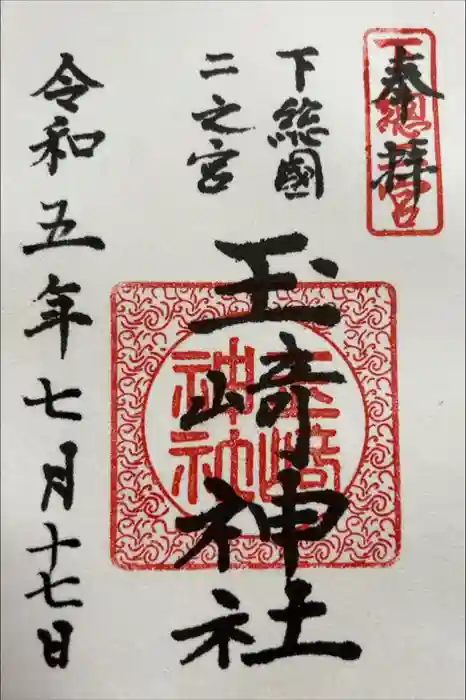 奉拝
下總二宮
下総國
二之宮
玉﨑神社
玉﨑
神社
令和五年七月十七日